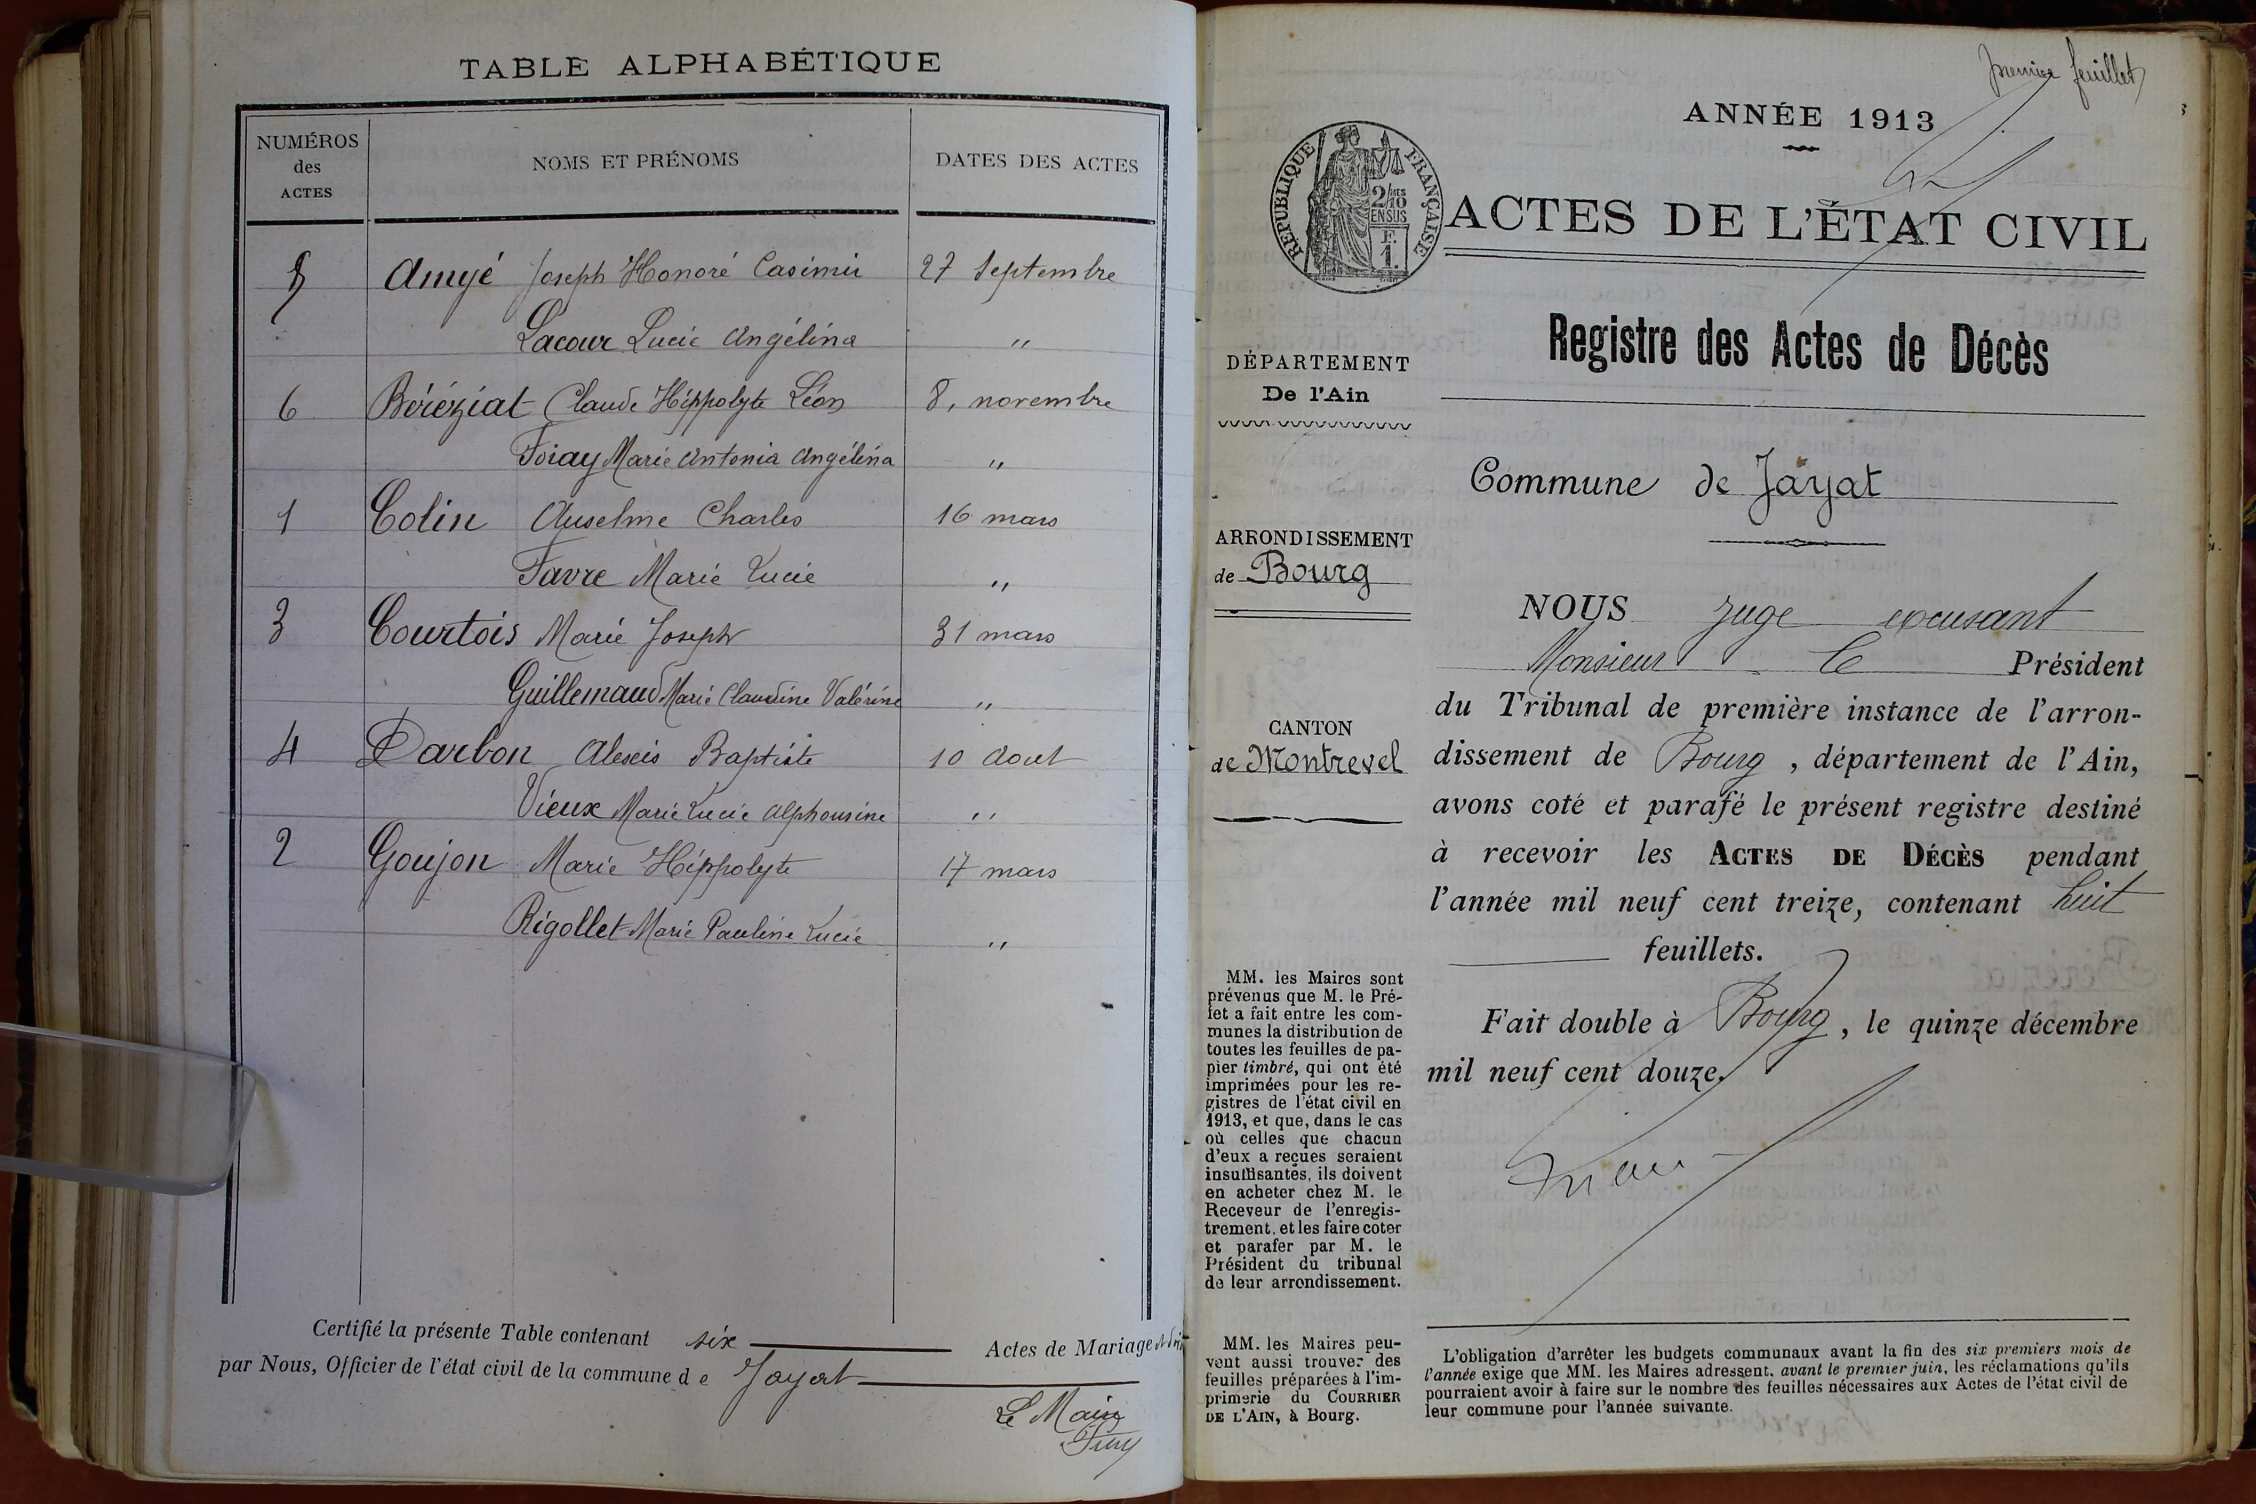 TABLE ALPHABÉTIQUE
NUMÉROS des ACTES
NOMS ET PRÉNOMS
DATES DES ACTES
5 Amyé Joseph Honoré Casimir 27 Septembre
Lacour Lucie Angélina "
6 Béréziat Claude Hippolyte Léon 8, novembre
Foray Marie Antonia Angélina "
1 Colin Anselme Charles 16 mars
Favre Marie Lucie "
3 Courtois Marie Joseph 31 mars
Guillemaud Marie Claudine Valérine "
4 Darbon Alexis Baptiste 10 Aout
Vieux Marie Lucie Alphonsine "
2 Goujon Marie Hippolyte 17 mars
Rigollet Marie Pauline Lucie "
Certifié la présente Table contenant six Actes de Mariage
par Nous, Officier de l'état civil de la commune de Jayat
Le Maire
premier feuillet
ANNÉE 1913
RÉPUBLIQUE FRANÇAISE
2/10MES
EN SUS
F.
1.
ACTES DE L'ÉTAT CIVIL
Registre des Actes de Décès
DÉPARTEMENT
De l'Ain
Commune de Jayat
ARRONDISSEMENT
de Bourg
CANTON
de Montrevel
NOUS Juge excusant
Monsieur le Président
du Tribunal de première instance de l'arron-
dissement de Bourg, département de l'Ain,
avons coté et parafé le présent registre destiné
à recevoir les ACTES DE DÉCÈS pendant
l'année mil neuf cent treize, contenant huit
feuillets.
Fait double à Bourg, le quinze décembre
mil neuf cent douze.
MM. les Maires sont
prévenus que M. le Pré-
fet a fait entre les com-
munes la distribution de
toutes les feuilles de pa-
pier timbré, qui ont été
imprimées pour les re-
gistres de l'état civil en
1913, et que, dans le cas
où celles que chacun
d'eux a reçues seraient
insuffisantes, ils doivent
en acheter chez M. le
Receveur de l'enregis-
trement, et les faire coter
et parafer par M. le
Président du tribunal
de leur arrondissement.
MM. les Maires peu-
vent aussi trouver des
feuilles préparées à l'im-
primerie du COURRIER
DE L'AIN, à Bourg.
L'obligation d'arrêter les budgets communaux avant la fin des six premiers mois de
l'année exige que MM. les Maires adressent, avant le premier juin, les réclamations qu'ils
pourraient avoir à faire sur le nombre des feuilles nécessaires aux Actes de l'état civil de
leur commune pour l'année suivante.